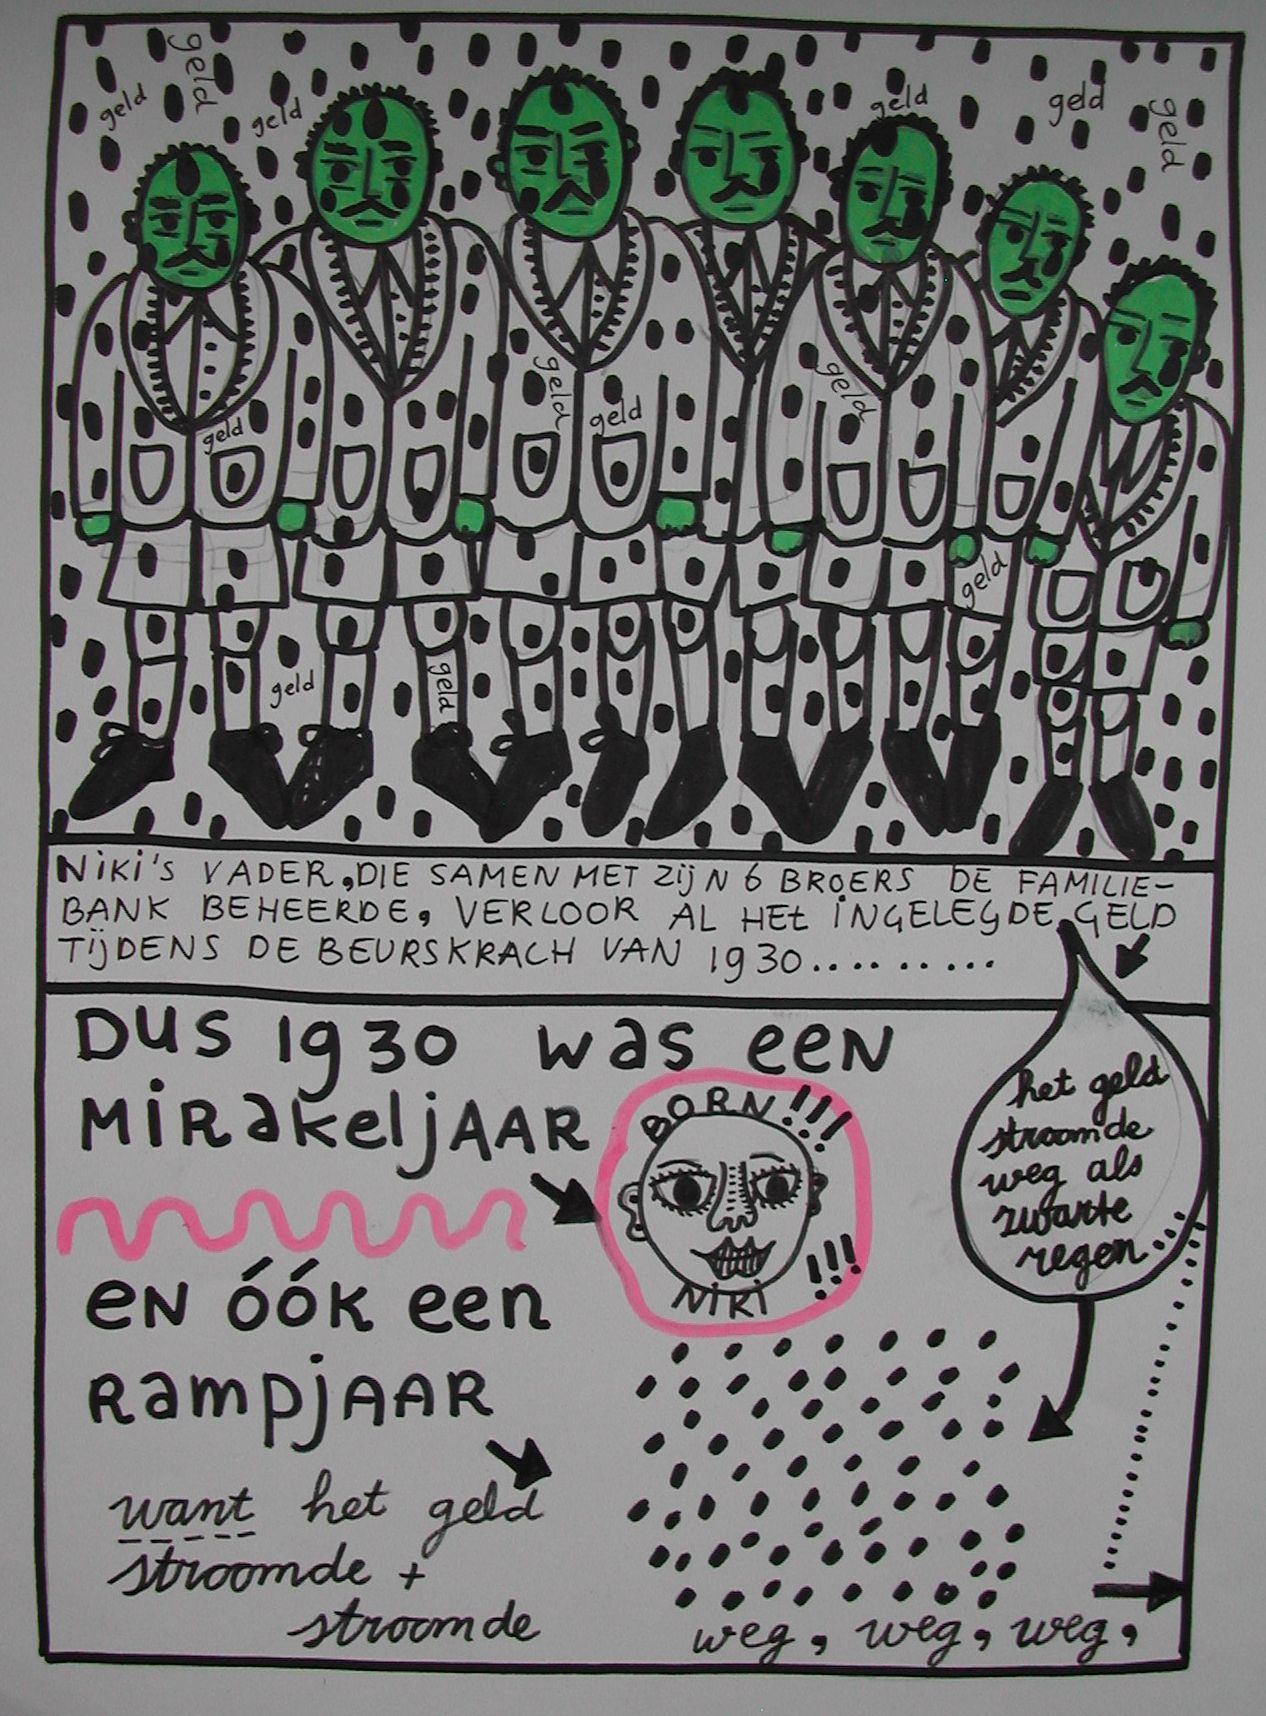 geld
geld
geld
geld
geld
geld
geld
geld
geld
geld
geld
geld
geld
NIKI'S VADER, DIE SAMEN MET ZIJN 6 BROERS DE FAMILIE-
BANK BEHEERDE, VERLOOR AL HET INGELEGDE GELD
TIJDENS DE BEURSKRACH VAN 1930..........
DUS 1930 was een
MIRakeljAAR
BORN!!!
NIKI
!!!
het geld
stroomde
weg als
zwarte
regen...
en óók een
RampjAAR
want het geld
stroomde +
stroomde
weg, weg, weg,